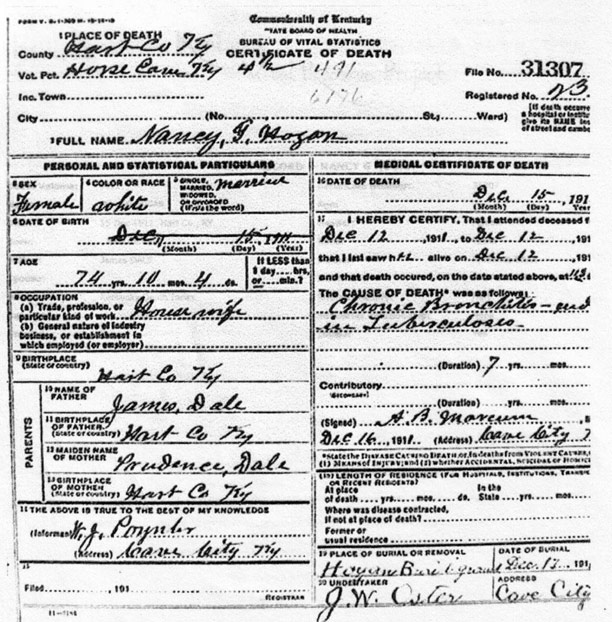 FORM V. S. 1-
Commonwealth of Kentucky
STATE BOARD OF HEALTH
BUREAU OF VITAL STATISTICS
CERTIFICATE OF DEATH
1 PLACE OF DEATH
County Hart Co Ky
Vot. Pct. Horse Cave, Ky 491
6776
File No. 31307
Registered No. 23
Inc. Town
City (No. St.; Ward)
[If death occurred
a hospital or institu
give its NAME in
of street and number
2 FULL NAME Nancy, F. Hogan
PERSONAL AND STATISTICAL PARTICULARS
3 SEX Female
4 COLOR OR RACE white
5 SINGLE, MARRIED, WIDOWED, OR DIVORCED (Write the word) married
6 DATE OF BIRTH
Dec 15 191
(Month) (Day) (Year)
7 AGE
74 yrs. 10 mos. 4 ds.
If LESS than
1 day hrs.
or min.?
8 OCCUPATION
(a) Trade, profession, or
particular kind of work House wife
(b) General nature of industry
business, or establishment in
which employed (or employer)
9 BIRTHPLACE
(State or country) Hart Co Ky
PARENTS
10 NAME OF
FATHER James, Dale
11 BIRTHPLACE
OF FATHER
(State or country) Hart Co Ky
12 MAIDEN NAME
OF MOTHER Prudence, Dale
13 BIRTHPLACE
OF MOTHER
(State or country) Hart Co Ky
14 THE ABOVE IS TRUE TO THE BEST OF MY KNOWLEDGE
(Informant) W. J. Poynter
(Address) Cave City Ky
15
Filed 191
REGISTRAR
MEDICAL CERTIFICATE OF DEATH
16 DATE OF DEATH
Dec. 15 191
(Month) (Day) (Year)
17 I HEREBY CERTIFY, That I attended deceased f
Dec 12 1911 to Dec 12, 191
that I last saw her alive on Dec 12, 191
and that death occured, on the date stated above, at
The CAUSE OF DEATH* was as follows:
Chronic Bronchitis - end
in Tuberculosis
(Duration) 7 yrs. mos.
Contributory
(SECONDARY)
(Duration) yrs. mos.
(Signed) A. B. Marcum
Dec 16 1911 (Address) Cave City
*State the DISEASE CAUSING DEATH, or, in deaths from VIOLENT CAUSES,
(1) MEANS OF INJURY; and (2) whether ACCIDENTAL, SUICIDAL or HOMIC
18 LENGTH OF RESIDENCE (FOR HOSPITALS, INSTITUTIONS, TRANSIE
OR RECENT RESIDENTS)
At place In the
of death yrs. mos. ds. State yrs. mos.
Where was disease contracted,
if not at place of death?
Former or
usual residence
19 PLACE OF BURIAL OR REMOVAL
Hogan Burial ground
DATE OF BURIAL
Dec. 17, 191
20 UNDERTAKER
J. W.
ADDRESS
Cave City